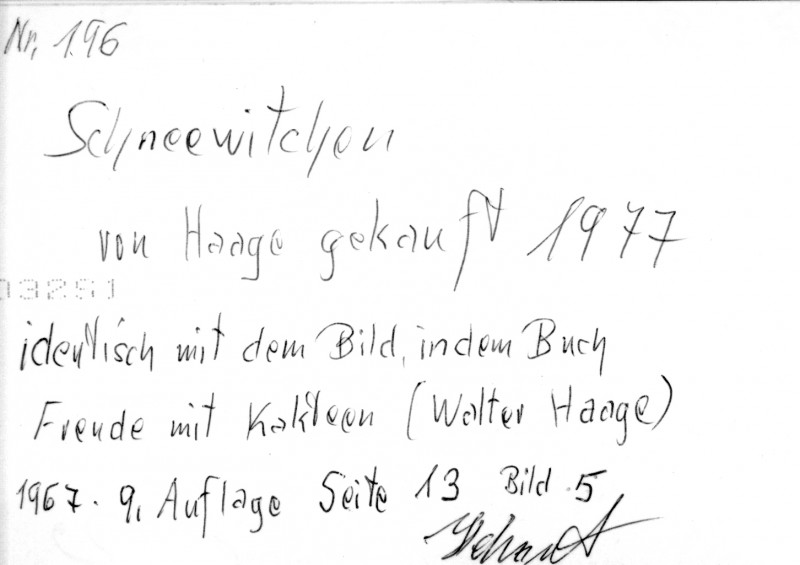 Nr. 196
Schneewitchen
von Haage gekauft 1977
03251
identisch mit dem Bild, in dem Buch
Freude mit Kakteen (Walter Haage)
1967. 9. Auflage Seite 13 Bild 5